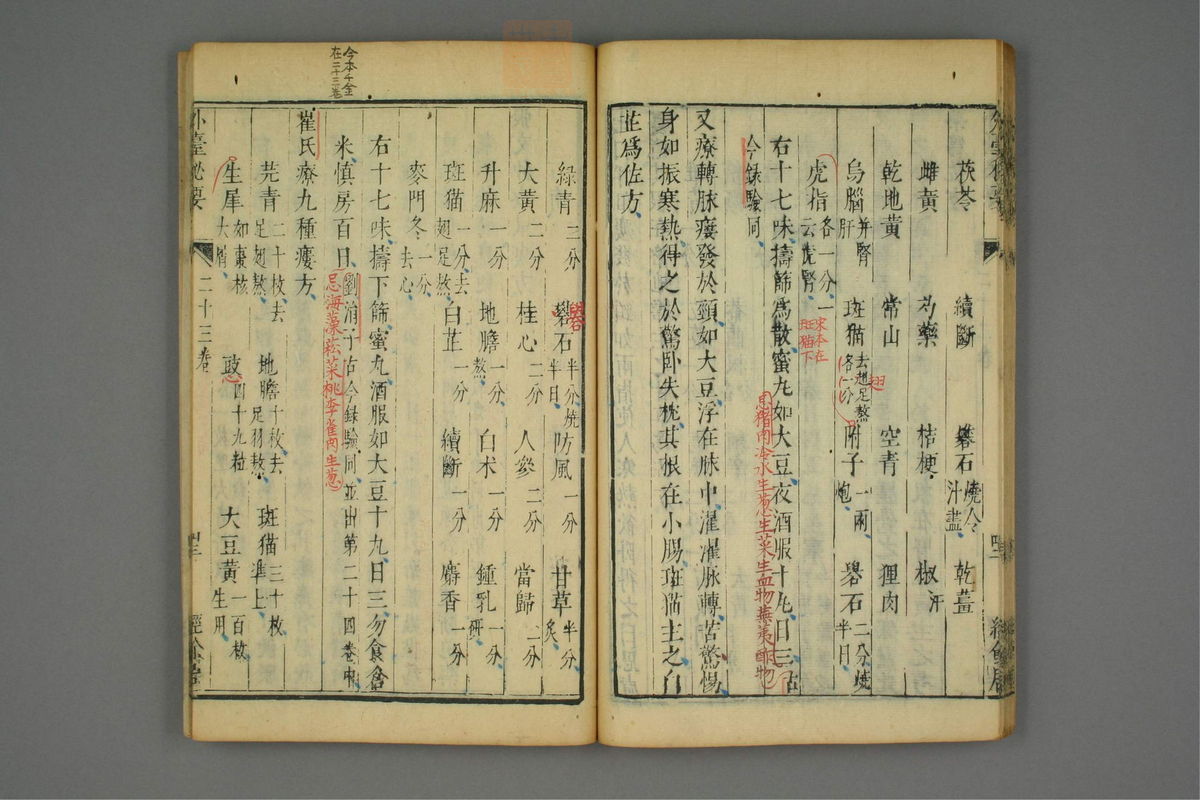 茯苓 續斷 礜石燒令汁盡 乾薑
雌黃 芍藥 桔梗 椒汗
乾地黃 常山 空青 狸肉
烏腦并腎肝 斑猫去翅足熬各一分 附子一兩炮 礜石二分燒半日
虎指各一分一云虎腎
宋本在斑猫下
翅
右十七味擣篩爲散蜜丸如大豆夜酒服十丸日三古
今錄驗同
忌猪肉冷水生葱生菜生血物蕪荑酢物
又療轉脉瘻發於頸如大豆浮在脉中濯濯脉轉苦驚惕
身如振寒熱得之於驚卧失枕其根在小腸斑猫主之白
芷爲佐方
今本千金在二十三卷
綠青二分 礜石半分燒半日 防風一分 甘草半分炙
大黃二分 桂心二分 人參二分 當歸二分
升麻一分 地膽一分熬 白术一分 鍾乳一分研
斑猫一分去翅足熬 白芷一分 續斷一分 麝香一分
麥門冬一分去心
右十七味擣下篩蜜丸酒服如大豆十丸日三勿食倉
米慎房百日劉涓子古今錄驗同並出第二十四卷中
忌海藻菘菜桃李雀肉生葱
崔氏療九種瘻方
芫青二十枚去足翅熬 地膽十枚去足羽熬 斑猫三十枚準上
生犀如棗核大屑 豉四十九粒 大豆黃一百枚生用
外臺祕要 二十三卷